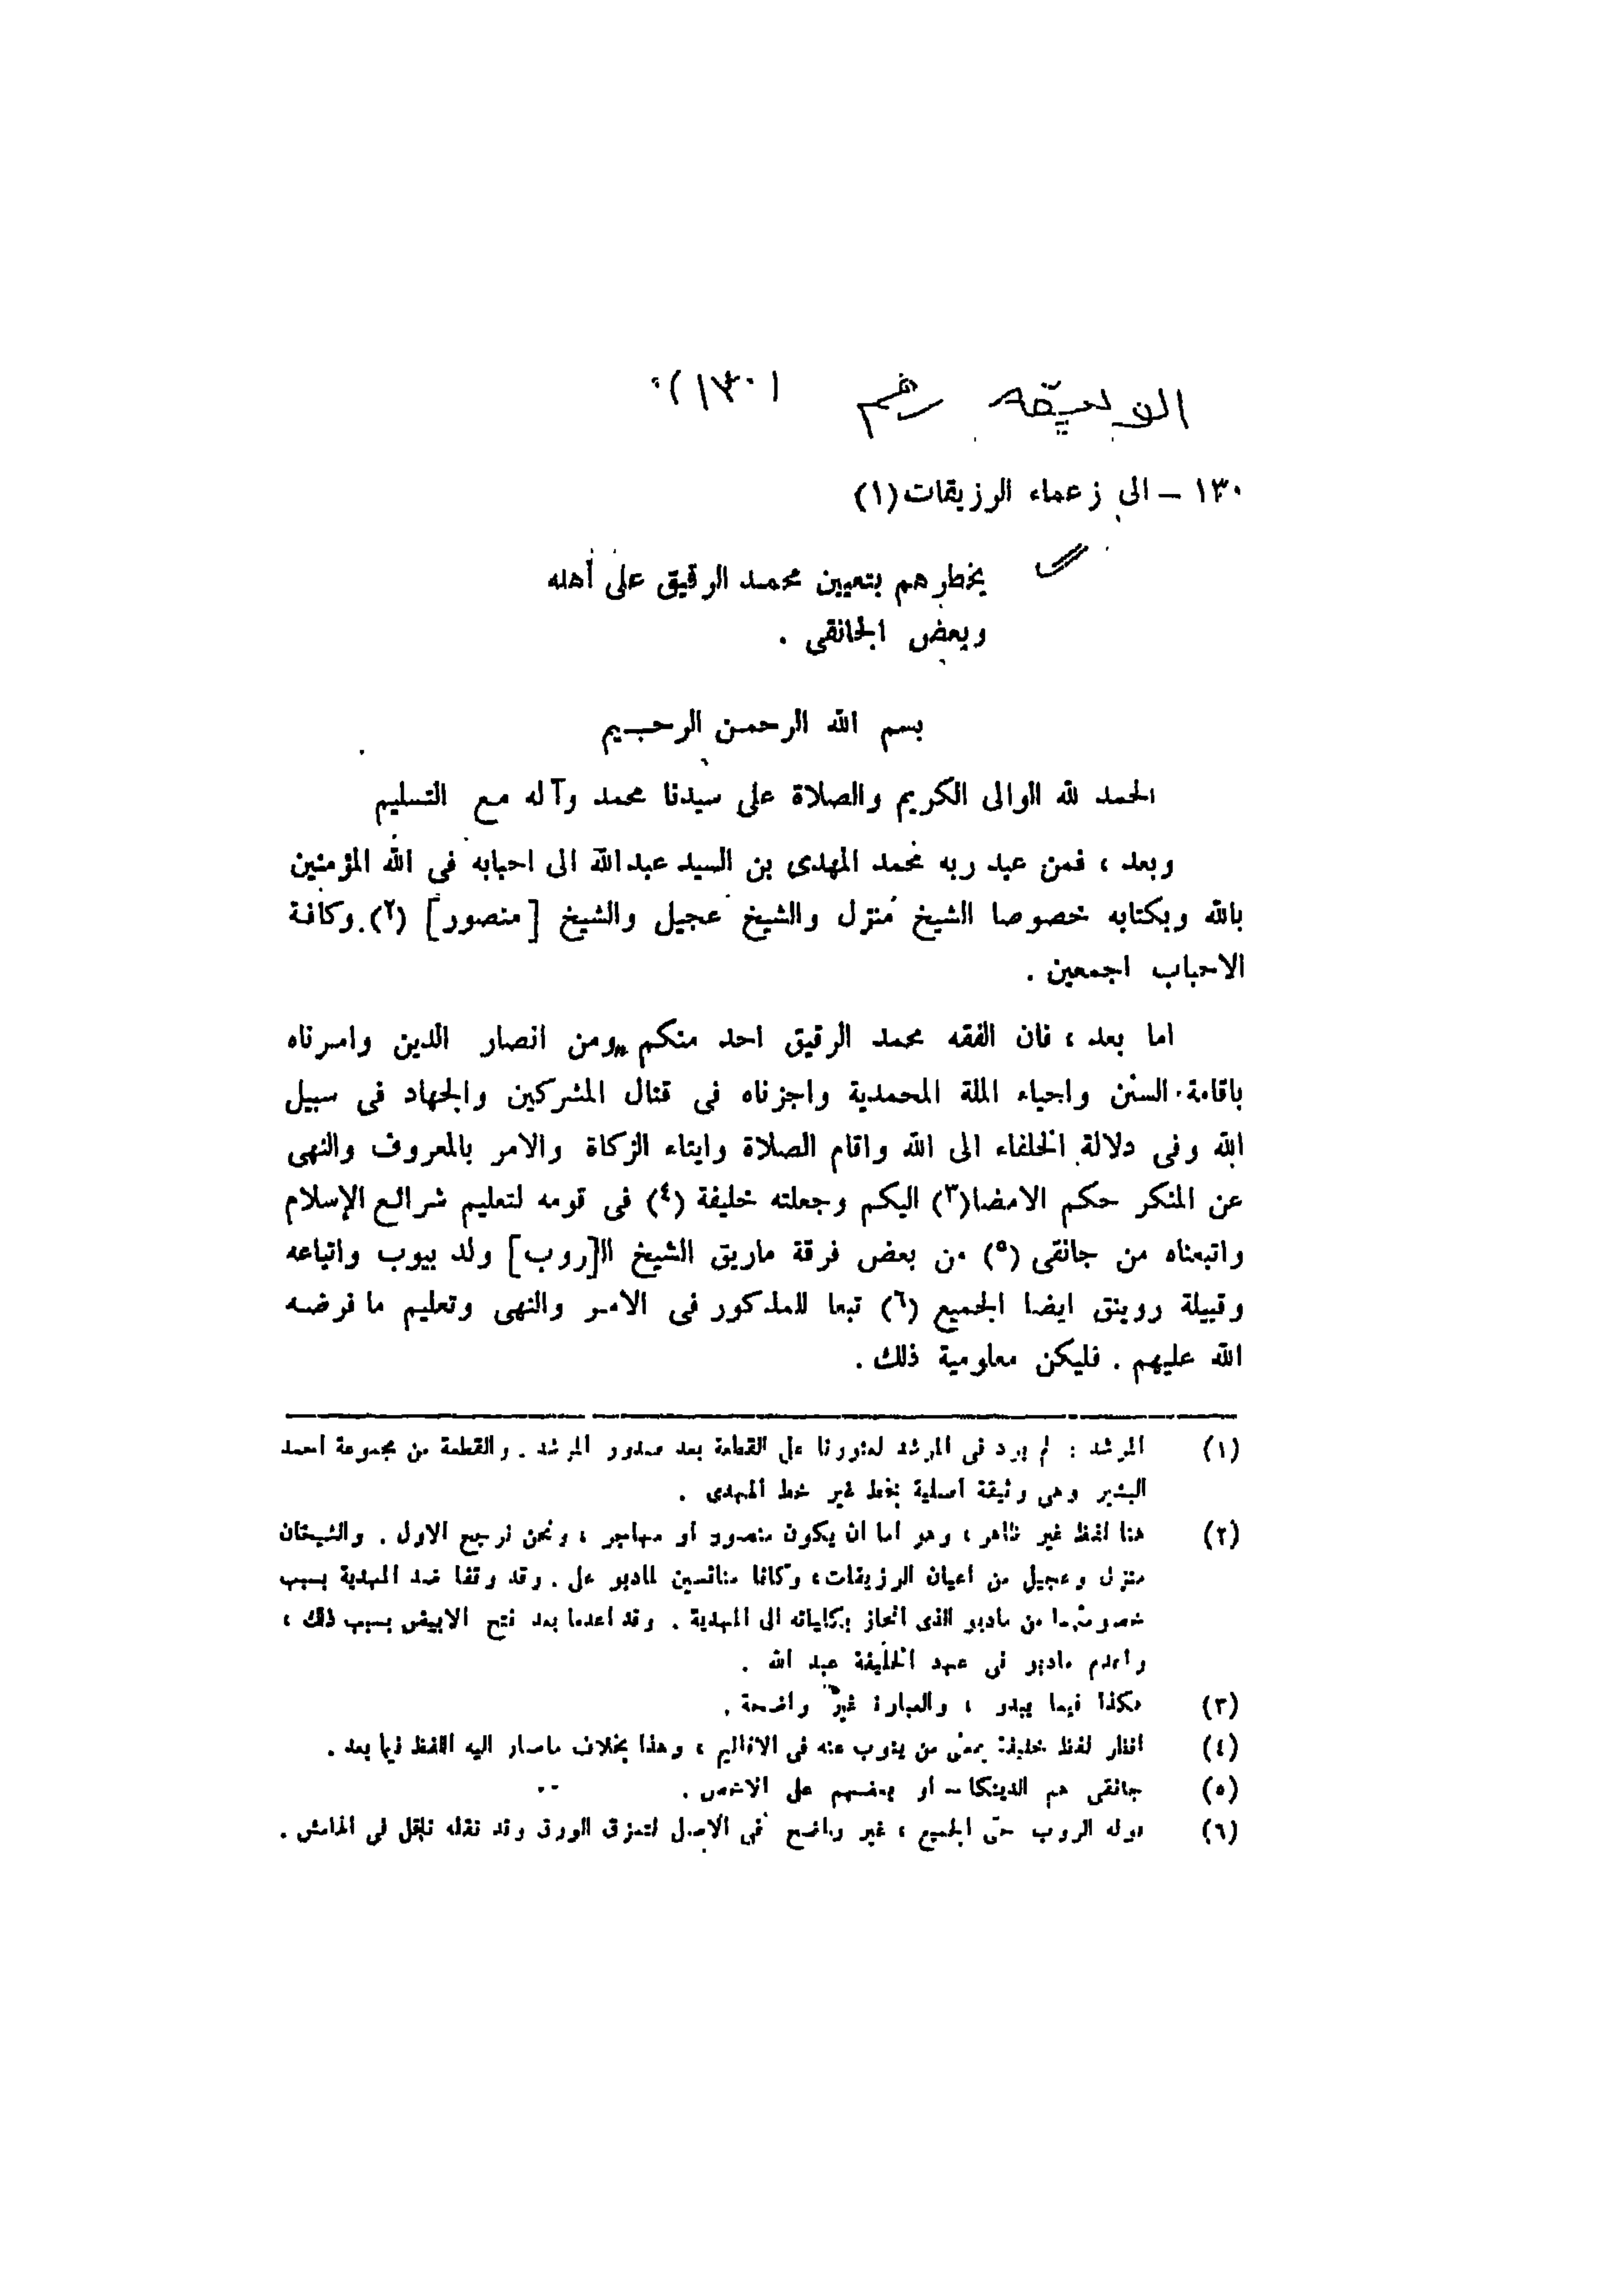 الوثيقة رقم (١٣٠)
١٣٠ - الى زعماء الرزيقات (١)
يخطرهم بتعيين محمد الرقيق على أهله
وبعض الجانقى .
بسم الله الرحمن الرحيم
الحمد لله الوالى الكريم والصلاة على سيدنا محمد وآله مع التسليم
وبعد ، فمن عبد ربه محمد المهدى بن السيد عبدالله الى احبابه فى الله المؤمنين
بالله وبكتابه خصوصا الشيخ منزل والشيخ عجيل والشيخ [منصور] (٢) . وكافة
الاحباب اجمعين .
اما بعد ، فان الفقه محمد الرقيق احد منكم ومن انصار الدين وامرناه
باقامة السنن واحياء الملة المحمدية واجزناه فى قتال المشركين والجهاد فى سبيل
الله وفى دلالة الخلفاء الى الله واقام الصلاة وايتاء الزكاة والامر بالمعروف والنهى
عن المنكر حكم الامضا (٣) اليكم وجعلته خليفة (٤) فى قومه لتعليم شرائع الإسلام
واتبعناه من جانقى (٥) من بعض فرقة ماريق الشيخ ال[روب] ولد بيوب واتباعه
وقبيلة روينق ايضا الجميع (٦) تبعا للمذكور فى الامر والنهى وتعليم ما فرضه
الله عليهم . فليكن معلومية ذلك .
(١) المرشد : لم يرد فى المرشد لعثورنا على القطعة بعد صدور المرشد . والقطعة من مجموعة احمد
البشير وهى وثيقة أصلية بخط غير خط المهدى .
(٢) هنا لفظ غير ظاهر ، وهو اما ان يكون منصور أو مهاجر ، ونحن نرجح الاول . والشيخان
منزل وعجيل من اعيان الرزيقات ، وكانا منافسين لمادبو على . وقد وقفا ضد المهدية بسبب
خصومتهما من مادبو الذى انحاز بكلياته الى المهدية . وقد اعدما بعد فتح الابيض بسبب ذلك ،
واعدم مادبو فى عهد الخليفة عبد الله .
(٣) هكذا فيما يبدو ، والعبارة غير واضحة .
(٤) انظر لفظ خليفة بمعنى من ينوب عنه فى الاقاليم ، وهذا بخلاف ماصار اليه اللفظ فيما بعد .
(٥) جانقى هم الدينكا - أو بعضهم على الاخص .
(٦) قوله الروب حتى الجميع ، غير واضح فى الاصل لتمزق الورق وقد نقله ناقل فى الهامش .